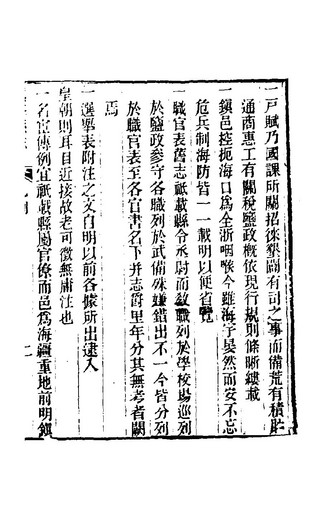 一戸賦乃國課所關招徠墾闢有司之事而備荒有積貯
通商惠工有關稅鹽政概依現行規則條晰縷載
一鎭邑控扼海口爲全浙咽喉今雖海宇晏然而安不忘
危兵制海防皆一一載明以便省覽
一職官表舊志祇載縣令丞尉而敎職列於學校場巡列
於鹽政參守各職列於武備殊嫌錯出不一今皆分列
於職官表至各官書名下并志爵里年分其無考者闕
焉
一選舉表附注之文自明以前各據所出逮入
皇朝則耳目近接故老可徵無庸注也
一名宦傳例宜祇載縣屬官僚而邑爲海疆重地前明鎭